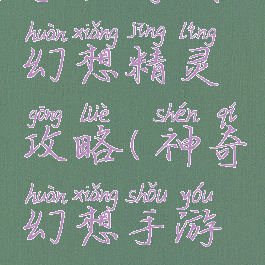 huàn xiǎng jīng líng
幻想精灵
gōng lüè shén qí
攻略(神奇
huàn xiǎng shǒu yóu
幻想手游